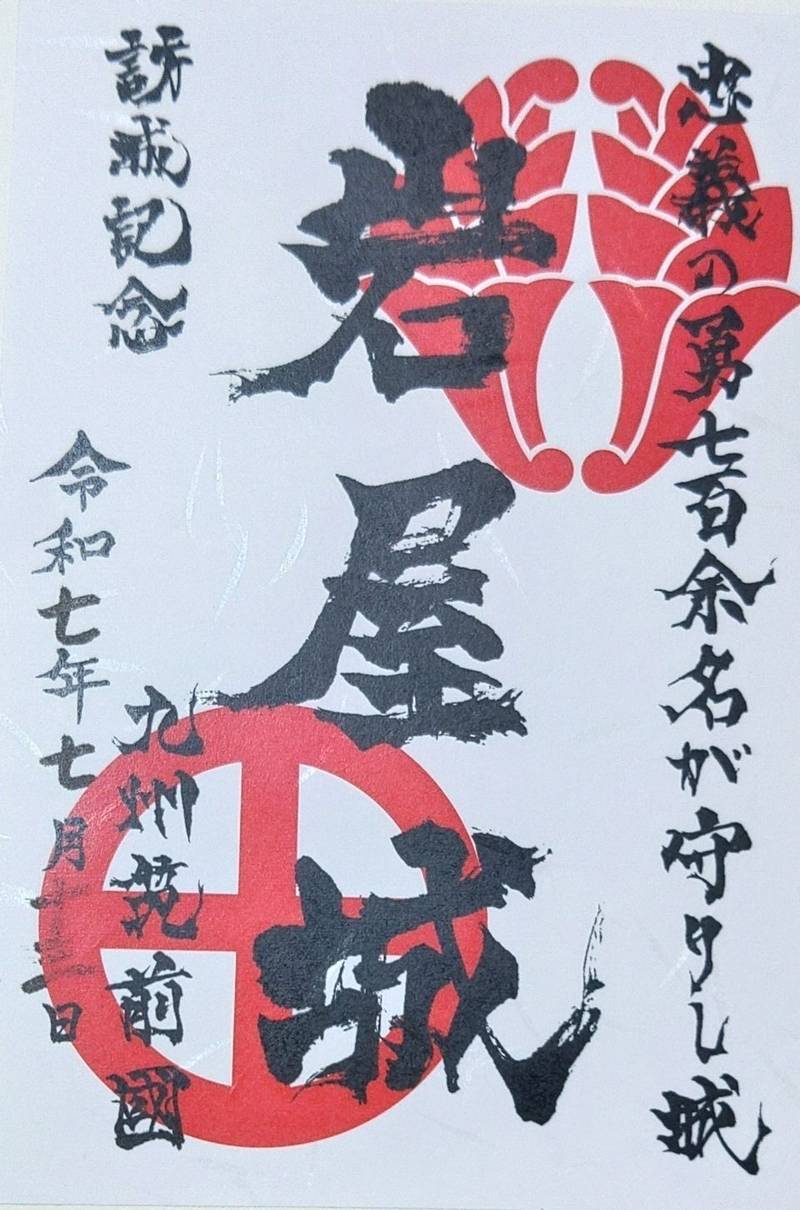 忠義の勇七百余名が守りし城
岩屋城
訪城記念
九州筑前國
令和七年七月十三日